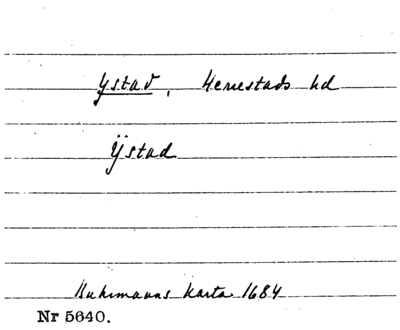 Ystad, Herrestads hd
Ÿstad
Buhrmanns Karta 1684
Nr 5640.